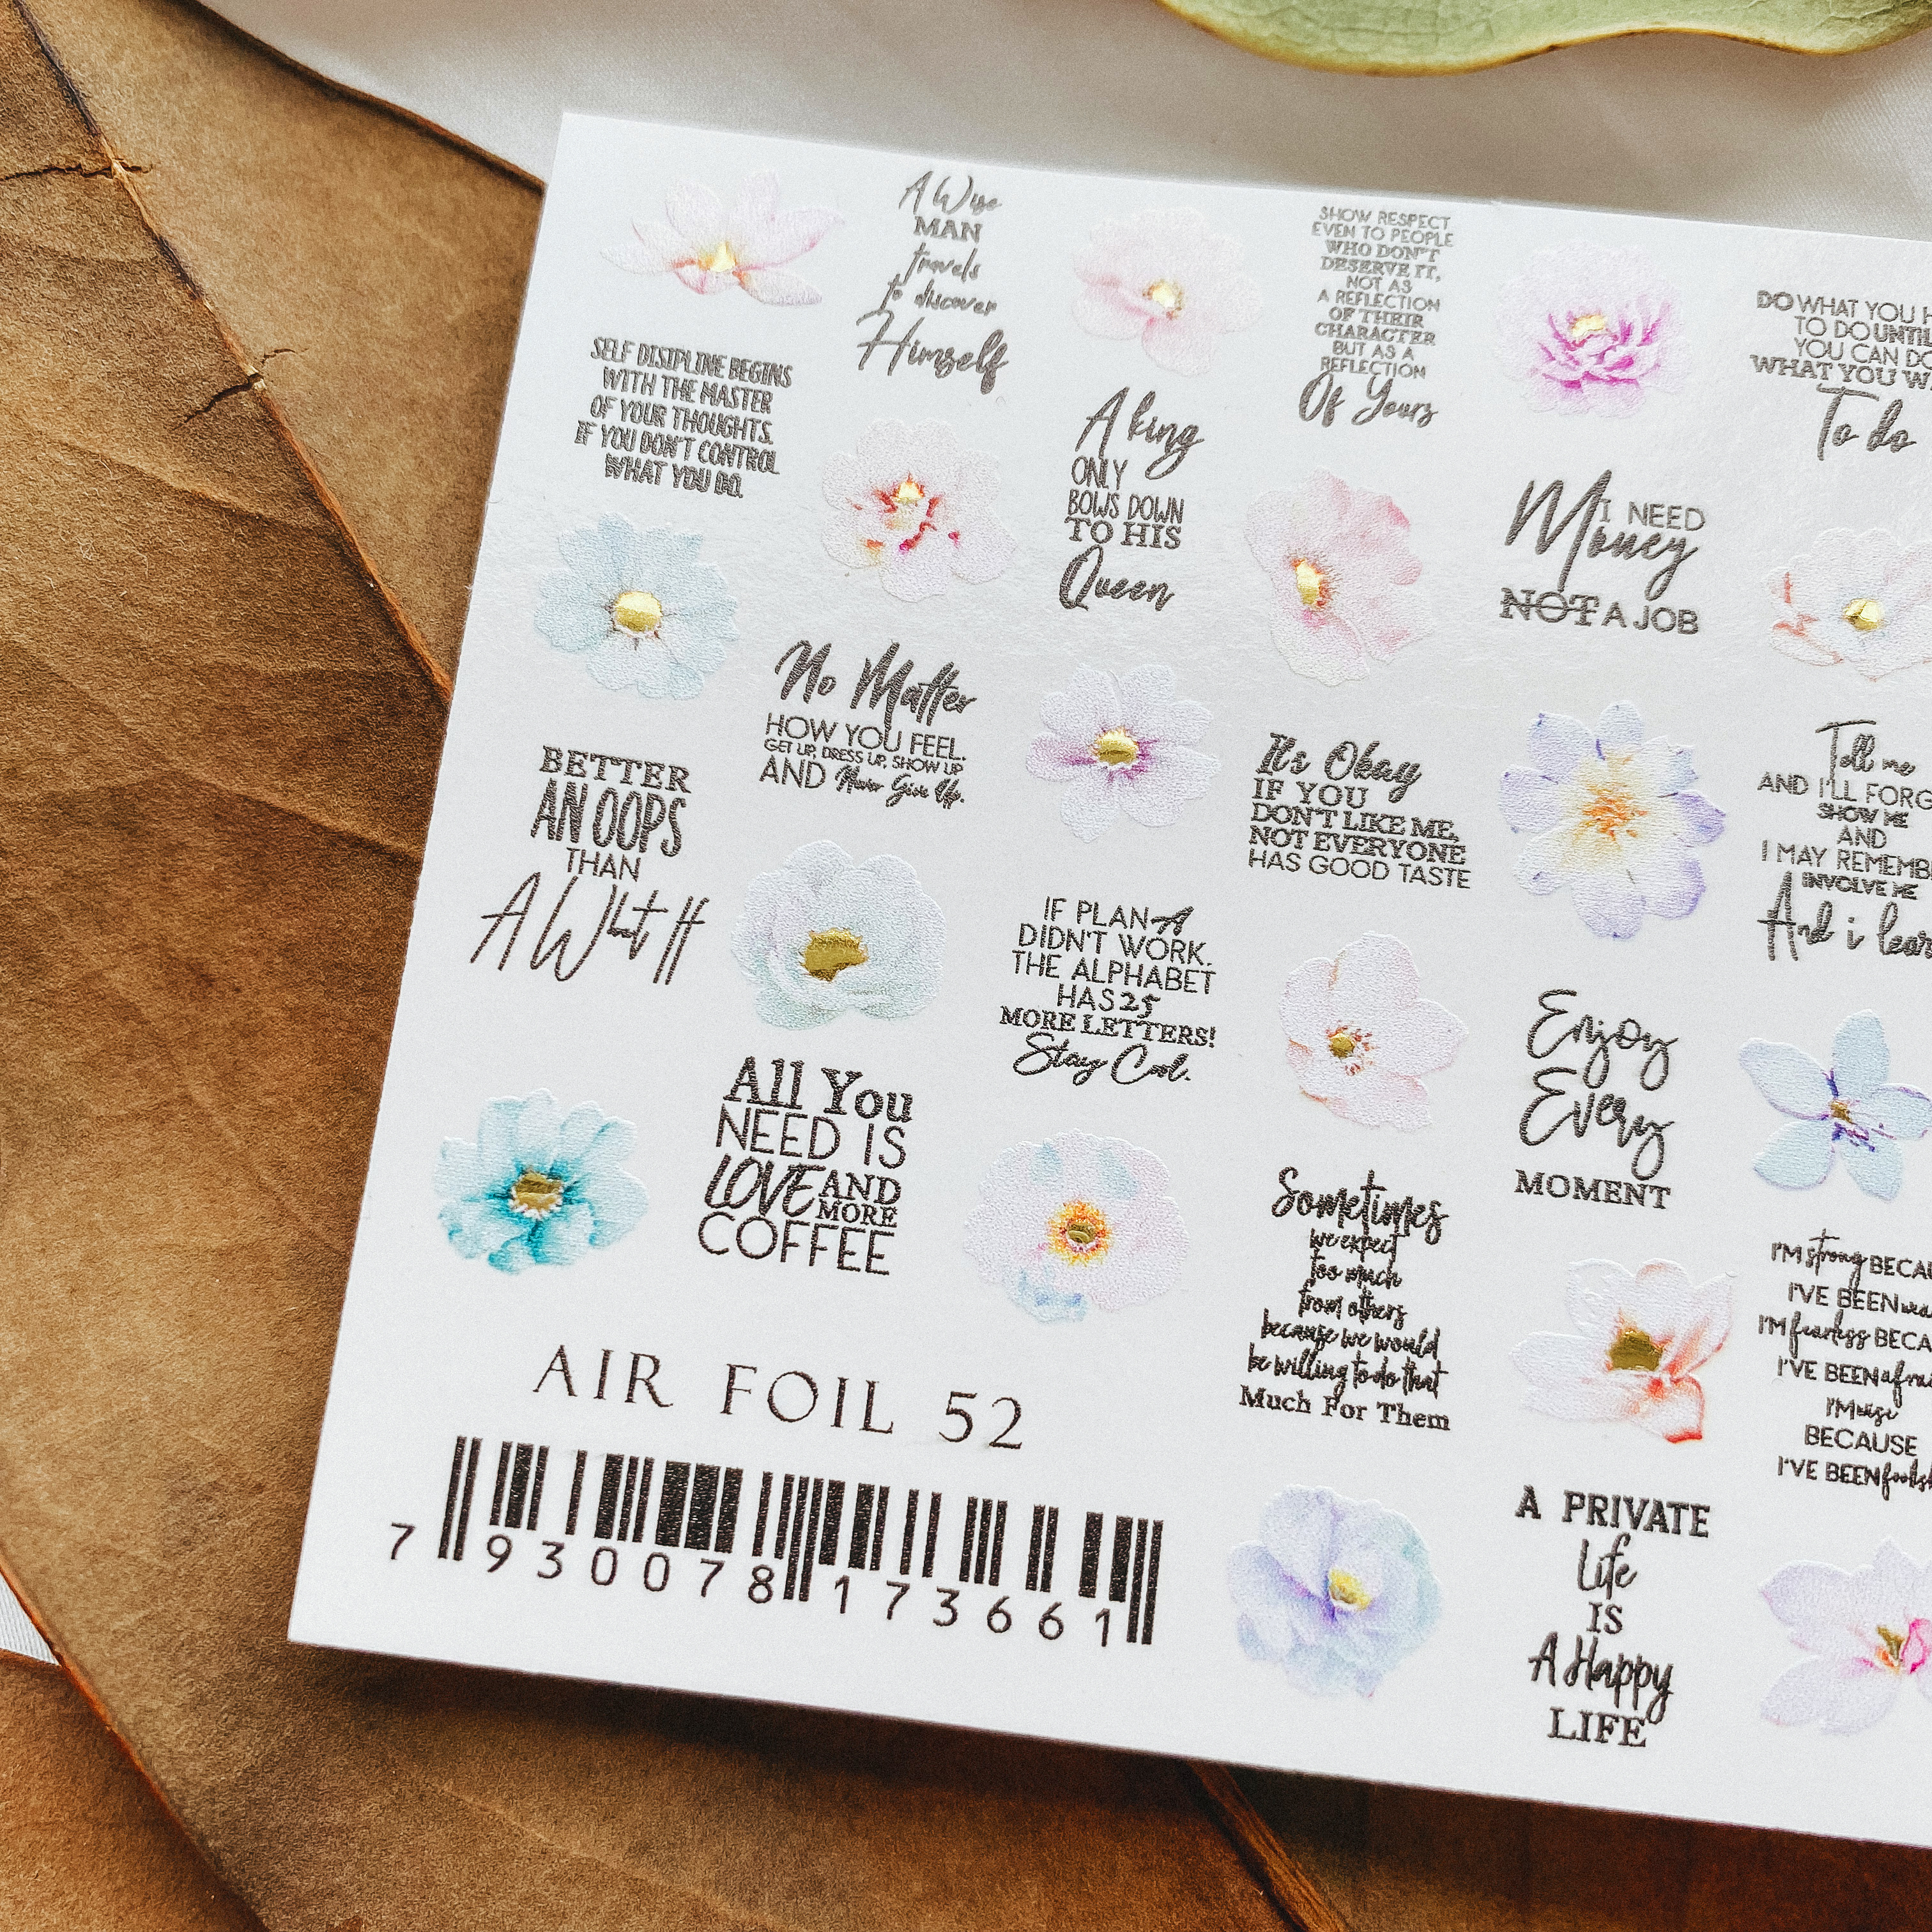 A Wise
MAN
travels
to discover
Himself
SHOW RESPECT
EVEN TO PEOPLE
WHO DON'T
DESERVE IT,
NOT AS
A REFLECTION
OF THEIR
CHARACTER
BUT AS A
REFLECTION
Of Yours
DO WHAT YOU
TO DO UNTIL
YOU CAN DO
WHAT YOU
To do
SELF DISIPLINE BEGINS
WITH THE MASTER
OF YOUR THOUGHTS.
IF YOU DON'T CONTROL
WHAT YOU DO.
A king
ONLY
BOWS DOWN
TO HIS
Queen
I NEED
Money
NOT A JOB
No Matter
HOW YOU FEEL.
GET UP, DRESS UP, SHOW UP
AND Never Give Up.
BETTER
AN OOPS
THAN
A What If
It's Okay
IF YOU
DON'T LIKE ME,
NOT EVERYONE
HAS GOOD TASTE
Tell me
AND I'LL FORG
SHOW ME
AND
I MAY REMEMB
INVOLVE ME
And i lear
IF PLAN A
DIDN'T WORK.
THE ALPHABET
HAS 25
MORE LETTERS!
Stay Cool.
Enjoy
Every
MOMENT
All You
NEED IS
LOVE AND
MORE
COFFEE
Sometimes
we expect
too much
from others
because we would
be willing to do that
Much For Them
I'M strong BECAU
I'VE BEEN wea
I'M fearless BECA
I'VE BEEN afrai
I'M wise
BECAUSE
I'VE BEEN foolish
A PRIVATE
Life
IS
A Happy
LIFE
AIR FOIL 52
7 930078 173661